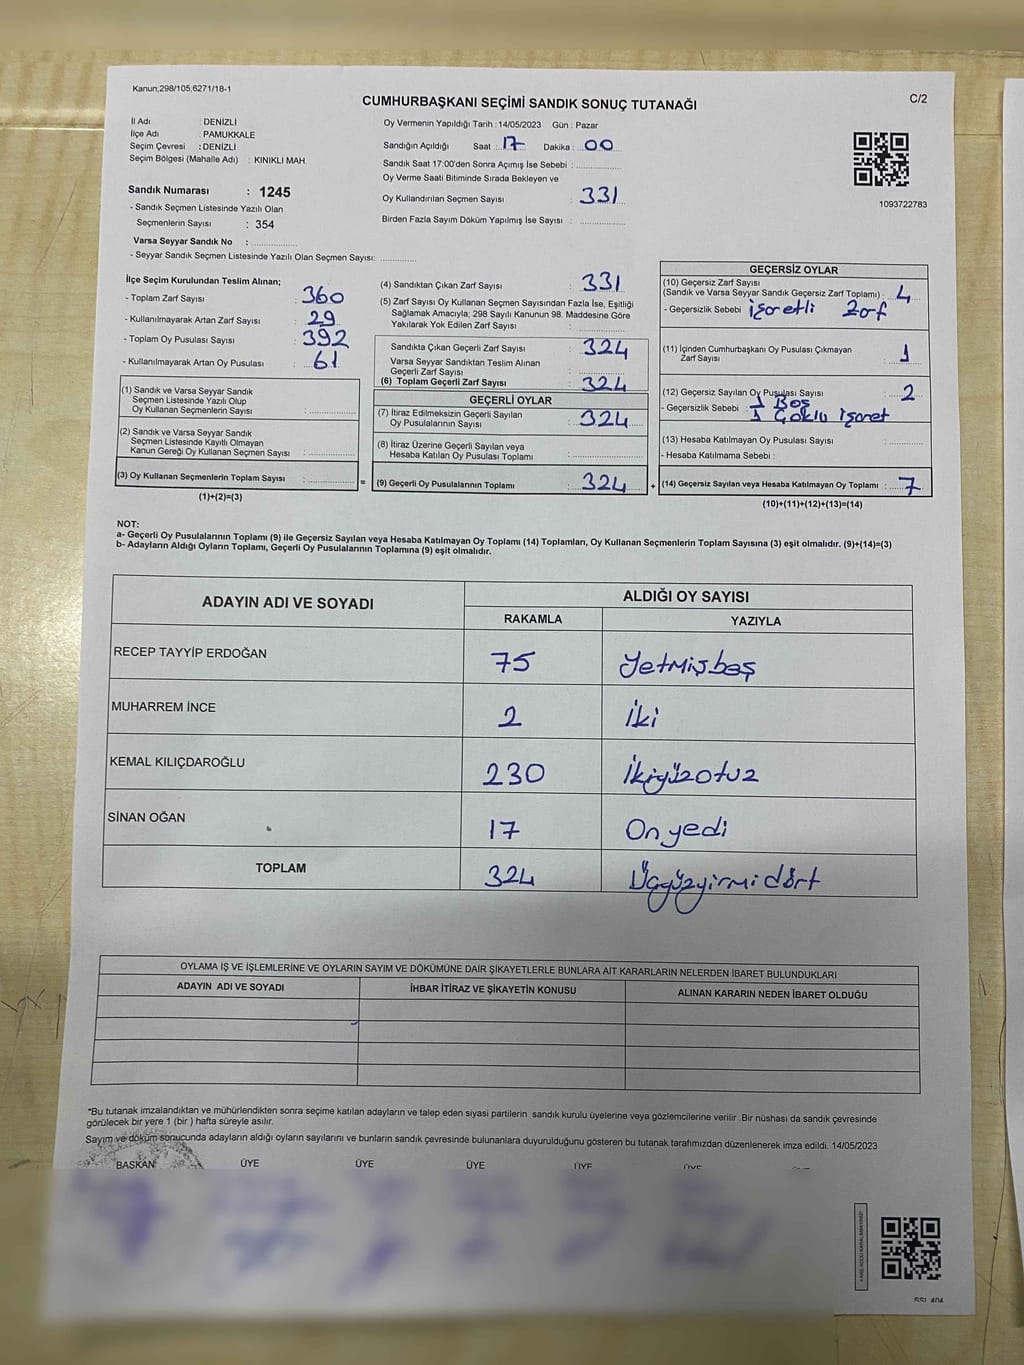 Kanun;298/105;6271/18-1
CUMHURBAŞKANI SEÇİMİ SANDIK SONUÇ TUTANAĞI
C/2
İl Adı : DENİZLİ
İlçe Adı : PAMUKKALE
Seçim Çevresi : DENİZLİ
Seçim Bölgesi (Mahalle Adı) : KINIKLI MAH.
Sandık Numarası : 1245
- Sandık Seçmen Listesinde Yazılı Olan
Seçmenlerin Sayısı : 354
Varsa Seyyar Sandık No :
- Seyyar Sandık Seçmen Listesinde Yazılı Olan Seçmen Sayısı:
Oy Vermenin Yapıldığı Tarih : 14/05/2023 Gün : Pazar
Sandığın Açıldığı Saat : 17 Dakika : 00
Sandık Saat 17:00'den Sonra Açımış İse Sebebi :
Oy Verme Saati Bitiminde Sırada Bekleyen ve
Oy Kullandırılan Seçmen Sayısı : 331
Birden Fazla Sayım Döküm Yapılmış İse Sayısı :
1093722783
İlçe Seçim Kurulundan Teslim Alınan;
- Toplam Zarf Sayısı : 360
- Kullanılmayarak Artan Zarf Sayısı : 29
- Toplam Oy Pusulası Sayısı : 392
- Kullanılmayarak Artan Oy Pusulası : 61
(1) Sandık ve Varsa Seyyar Sandık
Seçmen Listesinde Yazılı Olup
Oy Kullanan Seçmenlerin Sayısı :
(2) Sandık ve Varsa Seyyar Sandık
Seçmen Listesinde Kayıtlı Olmayan
Kanun Gereği Oy Kullanan Seçmen Sayısı :
(3) Oy Kullanan Seçmenlerin Toplam Sayısı :
(1)+(2)=(3)
=
(4) Sandıktan Çıkan Zarf Sayısı : 331
(5) Zarf Sayısı Oy Kullanan Seçmen Sayısından Fazla İse, Eşitliği
Sağlamak Amacıyla; 298 Sayılı Kanunun 98. Maddesine Göre
Yakılarak Yok Edilen Zarf Sayısı :
Sandıkta Çıkan Geçerli Zarf Sayısı : 324
Varsa Seyyar Sandıktan Teslim Alınan
Geçerli Zarf Sayısı :
(6) Toplam Geçerli Zarf Sayısı : 324
GEÇERLİ OYLAR
(7) İtiraz Edilmeksizin Geçerli Sayılan
Oy Pusulalarının Sayısı : 324
(8) İtiraz Üzerine Geçerli Sayılan veya
Hesaba Katılan Oy Pusulası Toplamı :
(9) Geçerli Oy Pusulalarının Toplamı : 324
+
GEÇERSİZ OYLAR
(10) Geçersiz Zarf Sayısı
(Sandık ve Varsa Seyyar Sandık Geçersiz Zarf Toplamı) : 4
- Geçersizlik Sebebi : işaretli Zarf
(11) İçinden Cumhurbaşkanı Oy Pusulası Çıkmayan
Zarf Sayısı : 1
(12) Geçersiz Sayılan Oy Pusulası Sayısı : 2
1 Boş
- Geçersizlik Sebebi : 1 Çoklu işaret
(13) Hesaba Katılmayan Oy Pusulası Sayısı :
- Hesaba Katılmama Sebebi :
(14) Geçersiz Sayılan veya Hesaba Katılmayan Oy Toplamı : 7
(10)+(11)+(12)+(13)=(14)
NOT:
a- Geçerli Oy Pusulalarının Toplamı (9) ile Geçersiz Sayılan veya Hesaba Katılmayan Oy Toplamı (14) Toplamları, Oy Kullanan Seçmenlerin Toplam Sayısına (3) eşit olmalıdır. (9)+(14)=(3)
b- Adayların Aldığı Oyların Toplamı, Geçerli Oy Pusulalarının Toplamına (9) eşit olmalıdır.
ADAYIN ADI VE SOYADI
ALDIĞI OY SAYISI
RAKAMLA YAZIYLA
RECEP TAYYİP ERDOĞAN 75 Yetmişbeş
MUHARREM İNCE 2 İki
KEMAL KILIÇDAROĞLU 230 İkiyüzotuz
SİNAN OĞAN 17 On yedi
TOPLAM 324 Üçyüzyirmi dört
OYLAMA İŞ VE İŞLEMLERİNE VE OYLARIN SAYIM VE DÖKÜMÜNE DAİR ŞİKAYETLERLE BUNLARA AİT KARARLARIN NELERDEN İBARET BULUNDUKLARI
ADAYIN ADI VE SOYADI İHBAR İTİRAZ VE ŞİKAYETİN KONUSU ALINAN KARARIN NEDEN İBARET OLDUĞU
*Bu tutanak imzalandıktan ve mühürlendikten sonra seçime katılan adayların ve talep eden siyasi partilerin sandık kurulu üyelerine veya gözlemcilerine verilir .Bir nüshası da sandık çevresinde
görülecek bir yere 1 (bir ) hafta süreyle asılır.
Sayım ve döküm sonucunda adayların aldığı oyların sayılarını ve bunların sandık çevresinde bulunanlara duyurulduğunu gösteren bu tutanak tarafımızdan düzenlenerek imza edildi. 14/05/2023
BAŞKAN ÜYE ÜYE ÜYE ÜYE ÜYE